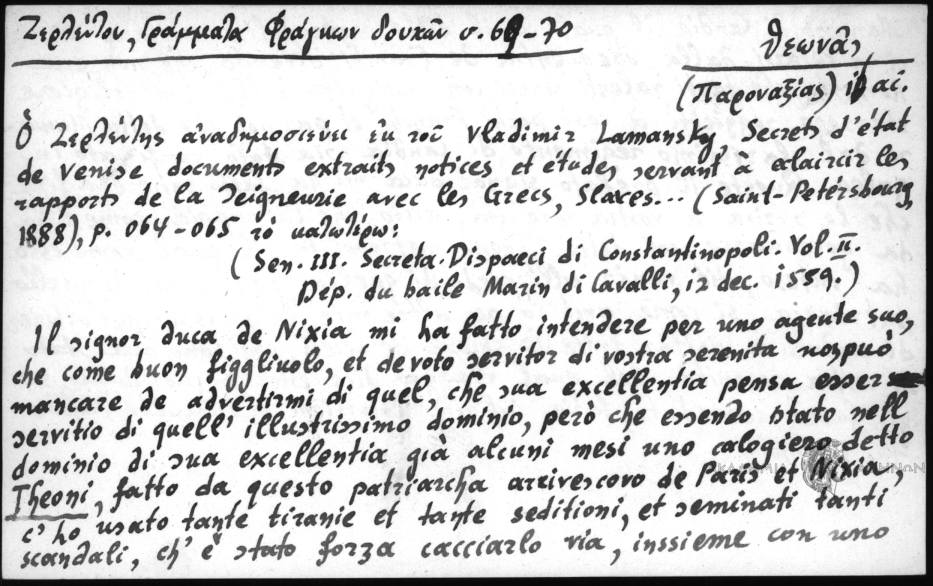 Ζερλέντου, Γράμματα Φράγκων δουκῶν σ. 69-70
Θεωνᾶς
(Παροναξίας) 16 αἰ.
Ὁ Ζερλέντης ἀναδημοσιεύει ἐκ τοῦ Vladimir Lamansky, Secrets d'état
de Venise documents extraits notices et études servant à éclaircir les
rapports de la Seigneurie avec les Grecs, Slaves... (Saint-Petérsbourg,
1888), p. 064-065 τὸ κατωτέρω:
(Sen. III. Secreta. Dispacci di Constantinopoli. Vol. II.
Dép. du baile Marin di Cavalli, 12 dec. 1559.)
Il signor duca de Nixia mi ha fatto intendere per uno agente suo,
che come buon figgliuolo, et devoto servitor di vostra serenita nospuò
mancare de advertirmi di quel, che sua excellentia pensa esser
servitio di quell' illustrissimo dominio, però che essendo stato nell
dominio di sua excellentia già alcuni mesi uno calogiero detto
Theoni, fatto da questo patriarcha arrivescovo de Paris et Nixia,
c'ho usato tante tiranie et tante seditioni, et seminati tanti
scandali, ch' è stato forza cacciarlo via, inssieme con uno